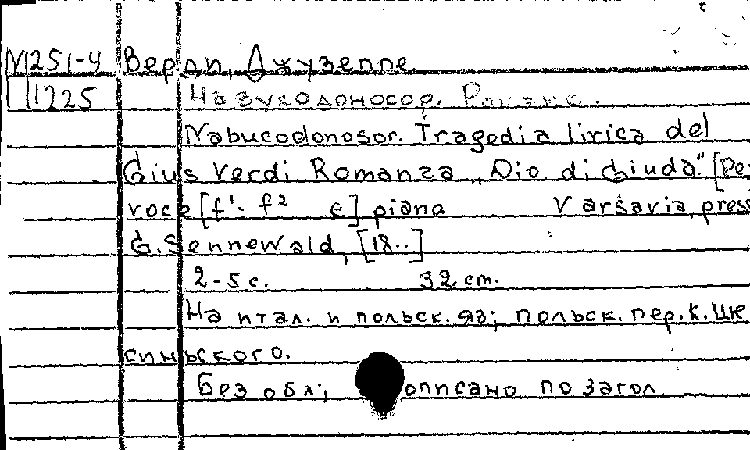 М251-У Верди, Джузеппе
1225 Навуходоносор. Романс.
Nabucodonosor. Tragedia lirica del
Gius Verdi Romanza „Dio di Giuda" [Per
voce [f¹- f² e] piano Varsavia, press
G. Sennewald, [18..]
2-5 с. 32 cm.
На итал. и польск. яз; польск. пер. К. Цю
синьского.
Без обл; описано по загол